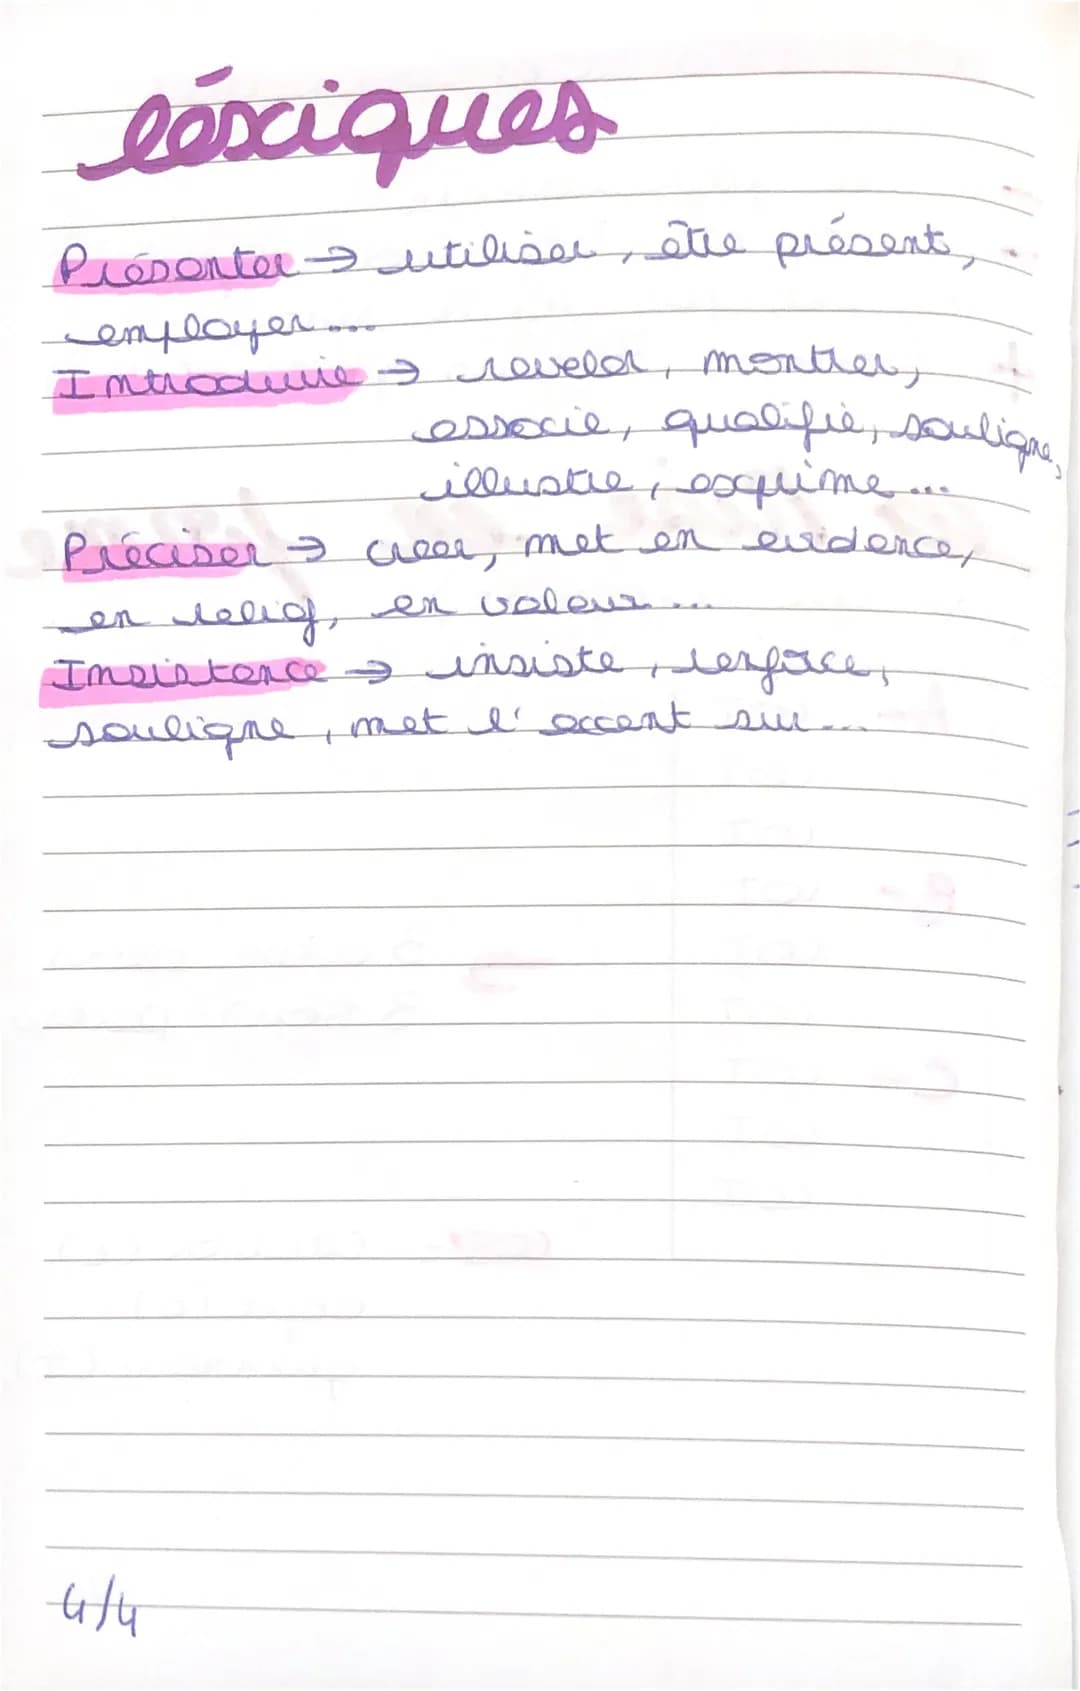 léxiques
Présenter → utiliser, être présent,
employer....
Introduire → reveler, montrer,
associe, qualifie, souligne,
illustre, exprime...
Préciser → creer, met en evidence,
en relief, en valeur...
Insistence → insiste, renforce,
souligne, met l'accent sur...
4/4